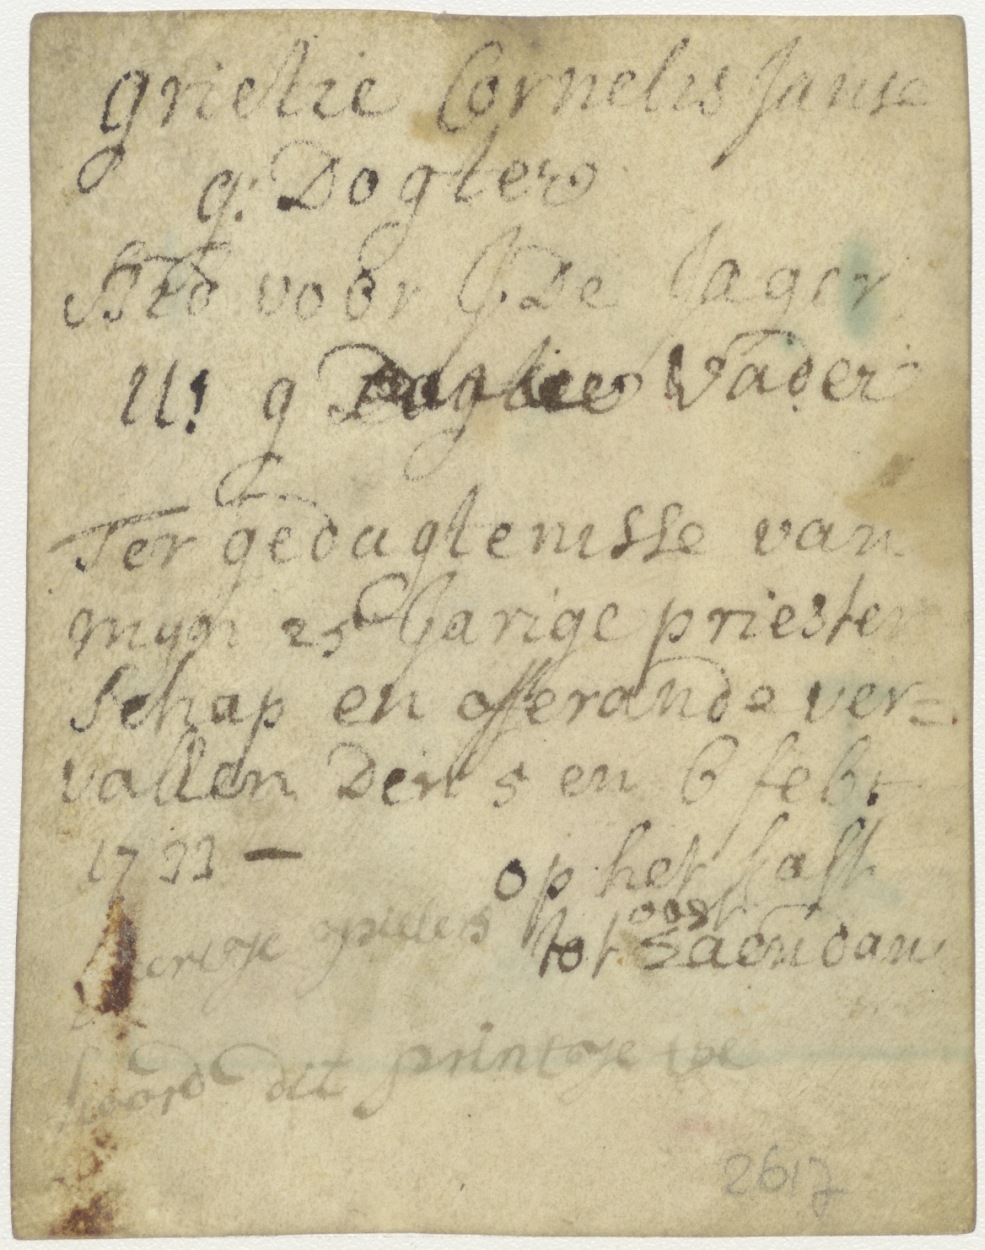 grietie Cornelis Janse
g: Dogter
Bid voor J: De Jager
U: g Vader
Ter gedagtenisse van
myn 25 Jarige priester
schap en offerande ver=
vallen Den 5 en 6 feb:
1733 —
op het kalk
oost
tot Saendam
hoord dit printje toe
2617